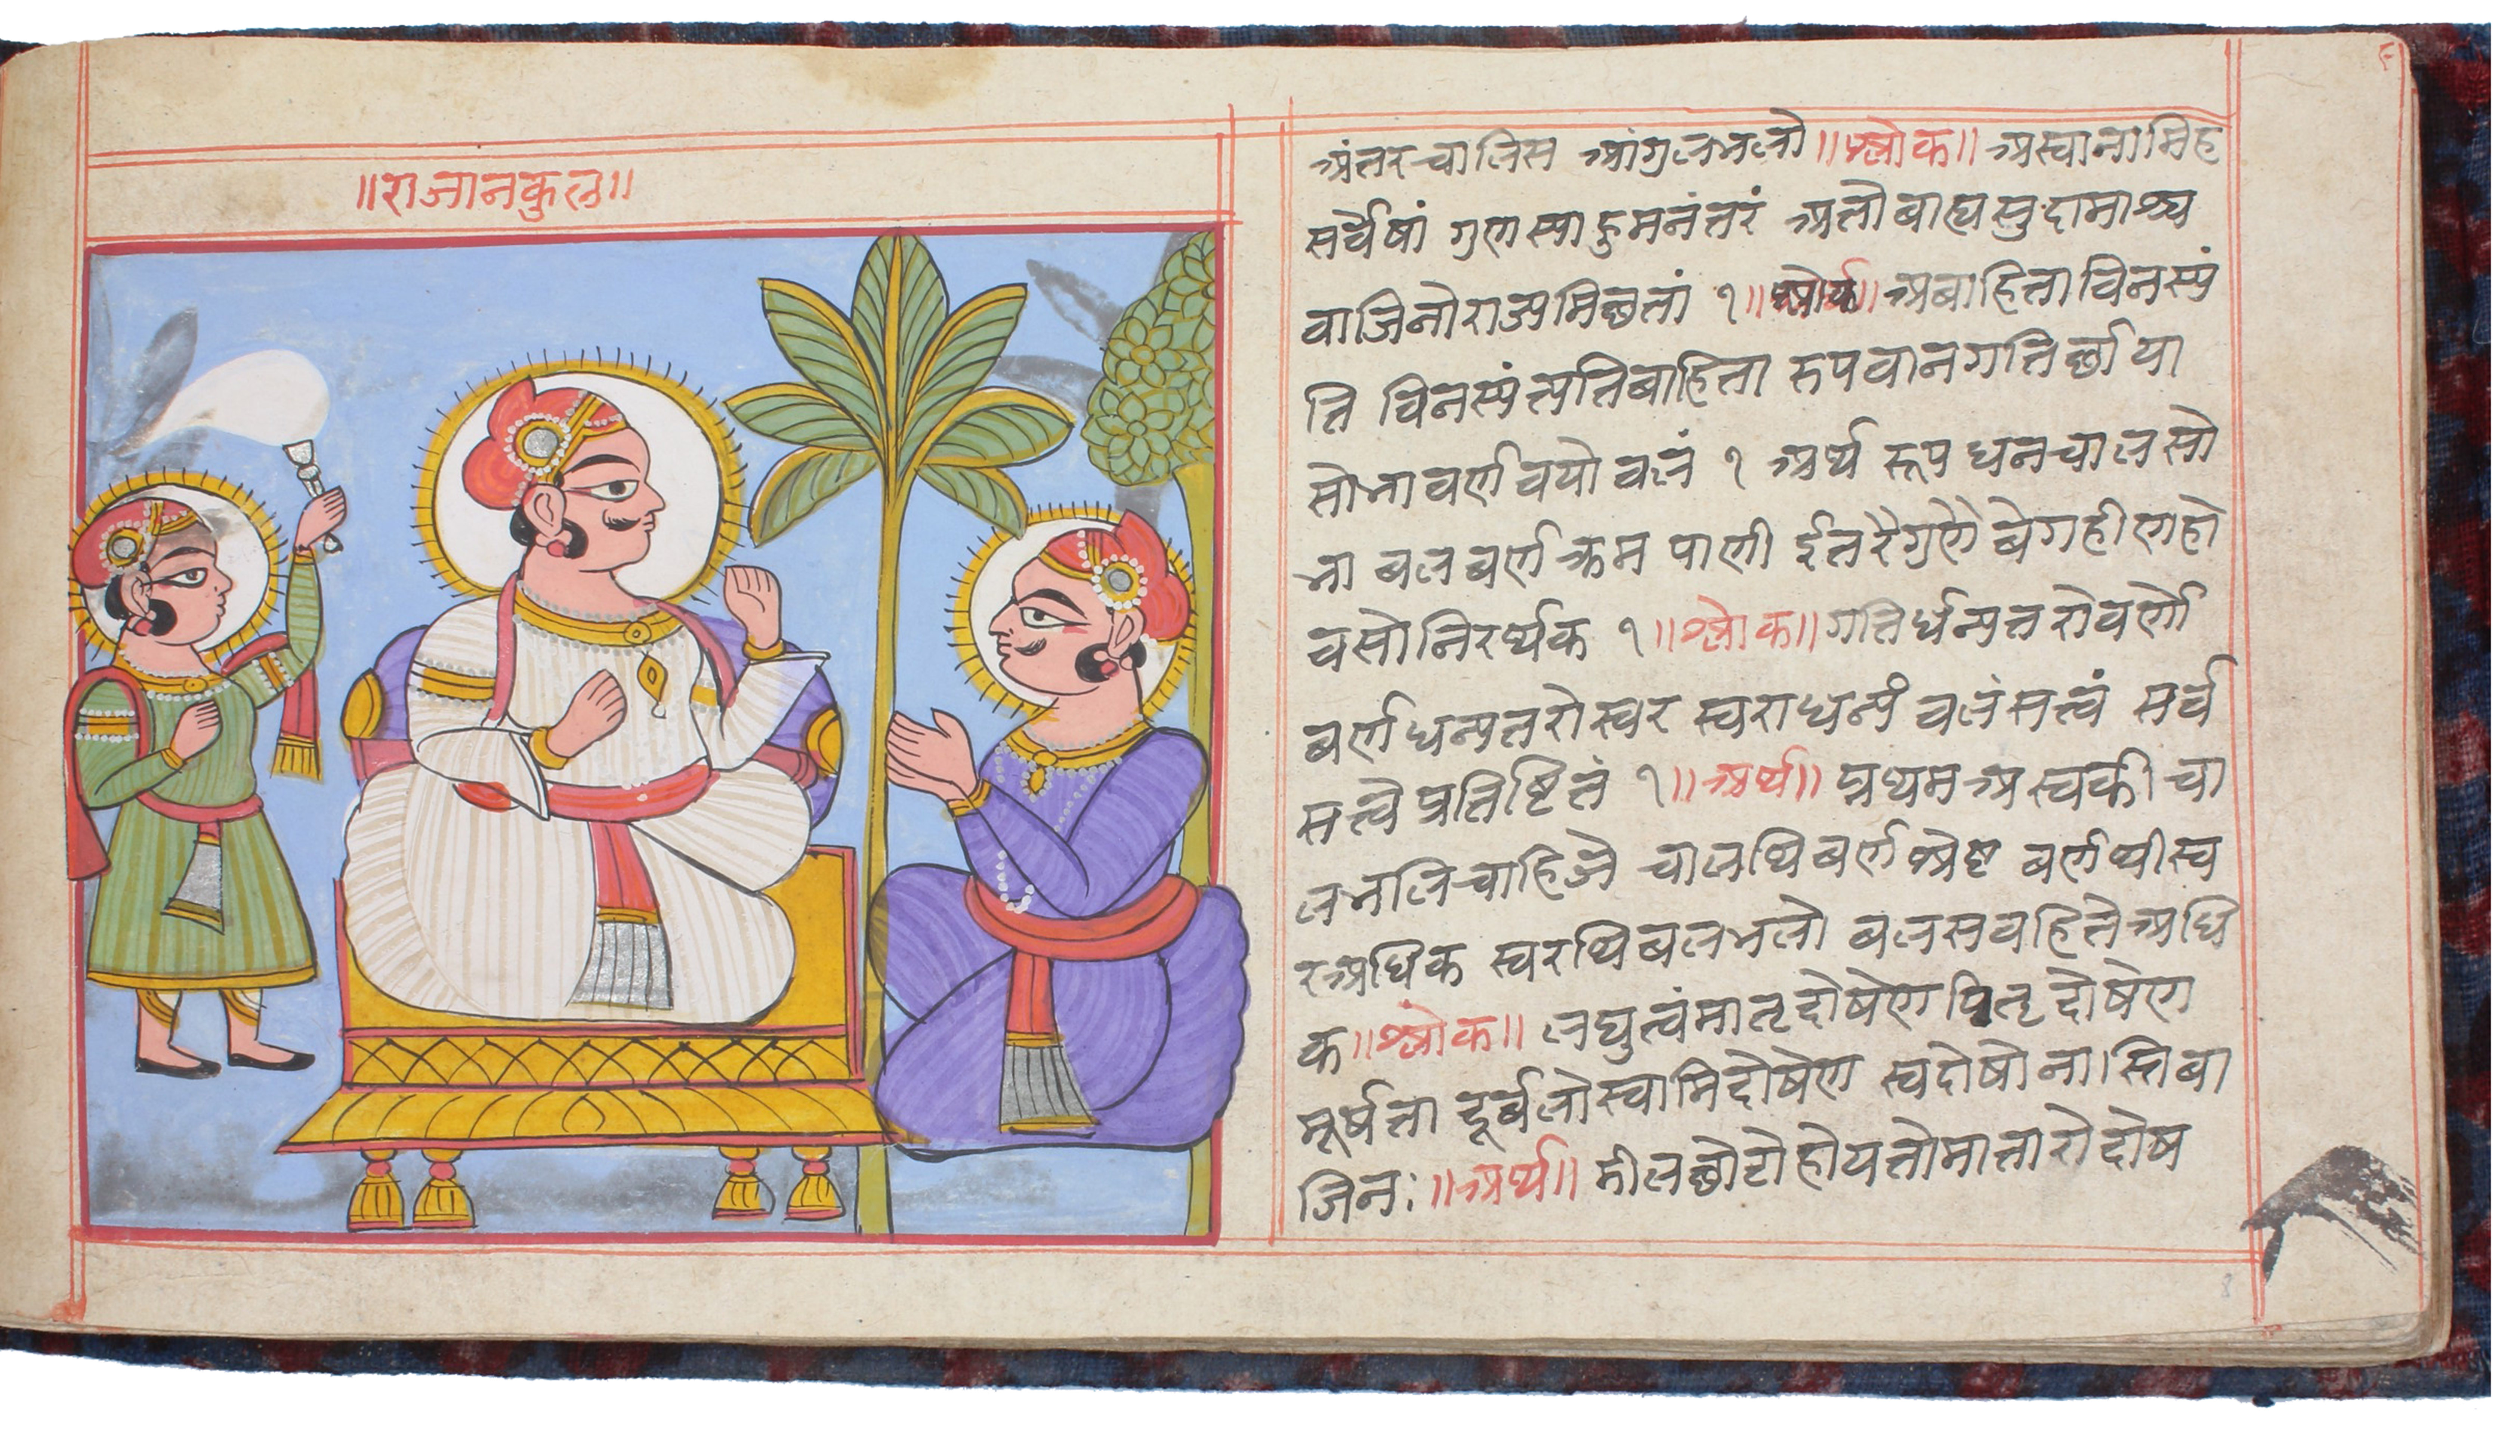 ॥राजानकुल॥
९
अंतरचालिस आंगुलभलो॥श्लोक॥ अस्वानामिह
सर्वेषां गुणसाहुमनंतरं अतोबाह्यसुदामाश्च
वाजिनोराज्यमिछतां १॥श्लोक॥अबाहिताविनस्यं
ति विनस्यंत्यतिबाहिता रुपवानगतिर्छाया
सोभावर्णवयोवलं १ अर्थ रूपधनचालसो
भा बलबर्णक्रम पाणी ईतरैगुणै बेगहीणहो
वसोनिरर्थक १॥श्लोक॥गतिर्धन्यतरोवर्णो
बर्णधन्यतरोस्वर स्वराधन्यं वलंसत्वं सर्व
सत्वेप्रतिष्टितं १॥अर्थ॥ प्रथमअस्वकी चा
लभलिचाहिजे चालथिबर्णश्रेष्ट बर्णथीस्व
रअधिक स्वरथिबलभलो बलसबहितेअधि
क॥श्लोक॥ लघुत्वंमातृदोषेण पितृदोषेण
मूर्षता दूर्बलोस्वामिदोषेण स्वदोषोनास्तिबा
जिनः॥अर्थ॥ डीलछोटोहोयतोमातारोदोष